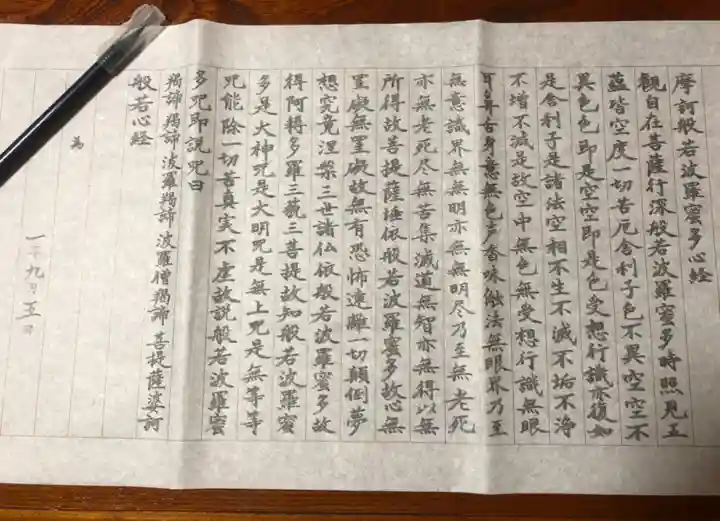 摩訶般若波羅蜜多心経
観自在菩薩行深般若波羅蜜多時照見五
蘊皆空度一切苦厄舎利子色不異空空不
異色色即是空空即是色受想行識亦復如
是舎利子是諸法空相不生不滅不垢不浄
不増不減是故空中無色無受想行識無眼
耳鼻舌身意無色声香味触法無眼界乃至
無意識界無無明亦無無明尽乃至無老死
亦無老死尽無苦集滅道無智亦無得以無
所得故菩提薩埵依般若波羅蜜多故心無
罣礙無罣礙故無有恐怖遠離一切顛倒夢
想究竟涅槃三世諸仏依般若波羅蜜多故
得阿耨多羅三藐三菩提故知般若波羅蜜
多是大神咒是大明咒是無上咒是無等等
咒能除一切苦真実不虚故説般若波羅蜜
多咒即説咒曰
羯諦 羯諦 波羅羯諦 波羅僧羯諦 菩提薩婆訶
般若心経
為
一年九月五日